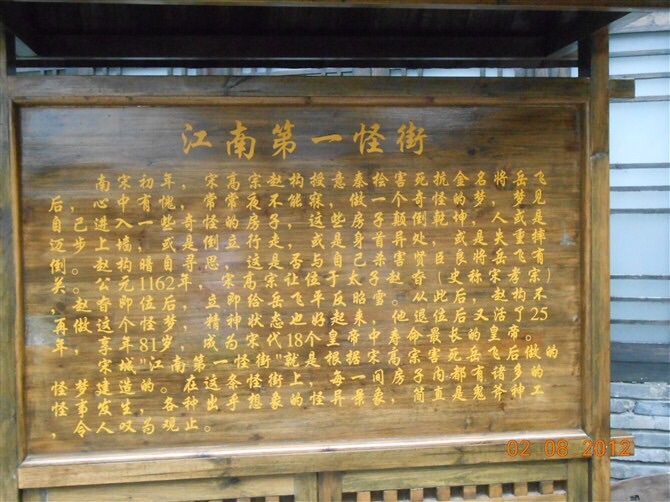 江南第一怪街
南宋初年，宋高宗赵构授意秦桧害死抗金名将岳飞
后，心中有愧，常常夜不能寐，做一个奇怪的梦，梦见
自己进入一些奇怪的房子，这些房子颠倒乾坤，人或是
迈步上墙，或是倒立行走，或是身首异处，或失重摔
倒。赵构暗自寻思，这是否与自己杀害贤臣良将岳飞有
关。公元1162年，宋高宗让位太子赵眘(史称宋孝宗)
，赵眘即位后，立即给岳飞平反昭雪。从此后，赵构不
再做这个怪梦，精神状态也好起来。他退位后又活了25
年，享年81岁，成为宋代18个皇帝中寿命最长的皇帝。
宋城"江南第一怪街"就是根据宋高宗害死岳飞后做的
怪梦建造的。在这条怪街上，每一间房子内都有诸多种
怪事发生，各种出乎想象的怪异景象，简直是鬼斧神工
，令人叹为观止。
02 08 2012